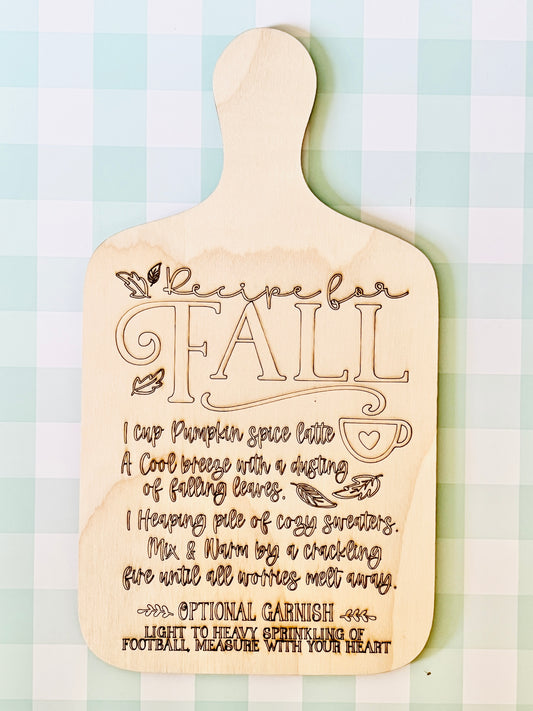 Recipe for
FALL
1 cup Pumpkin spice latte
A Cool breeze with a dusting
of falling leaves.
1 Heaping pile of cozy sweaters.
Mix & Warm by a crackling
fire until all worries melt away.
OPTIONAL GARNISH
LIGHT TO HEAVY SPRINKLING OF
FOOTBALL, MEASURE WITH YOUR HEART